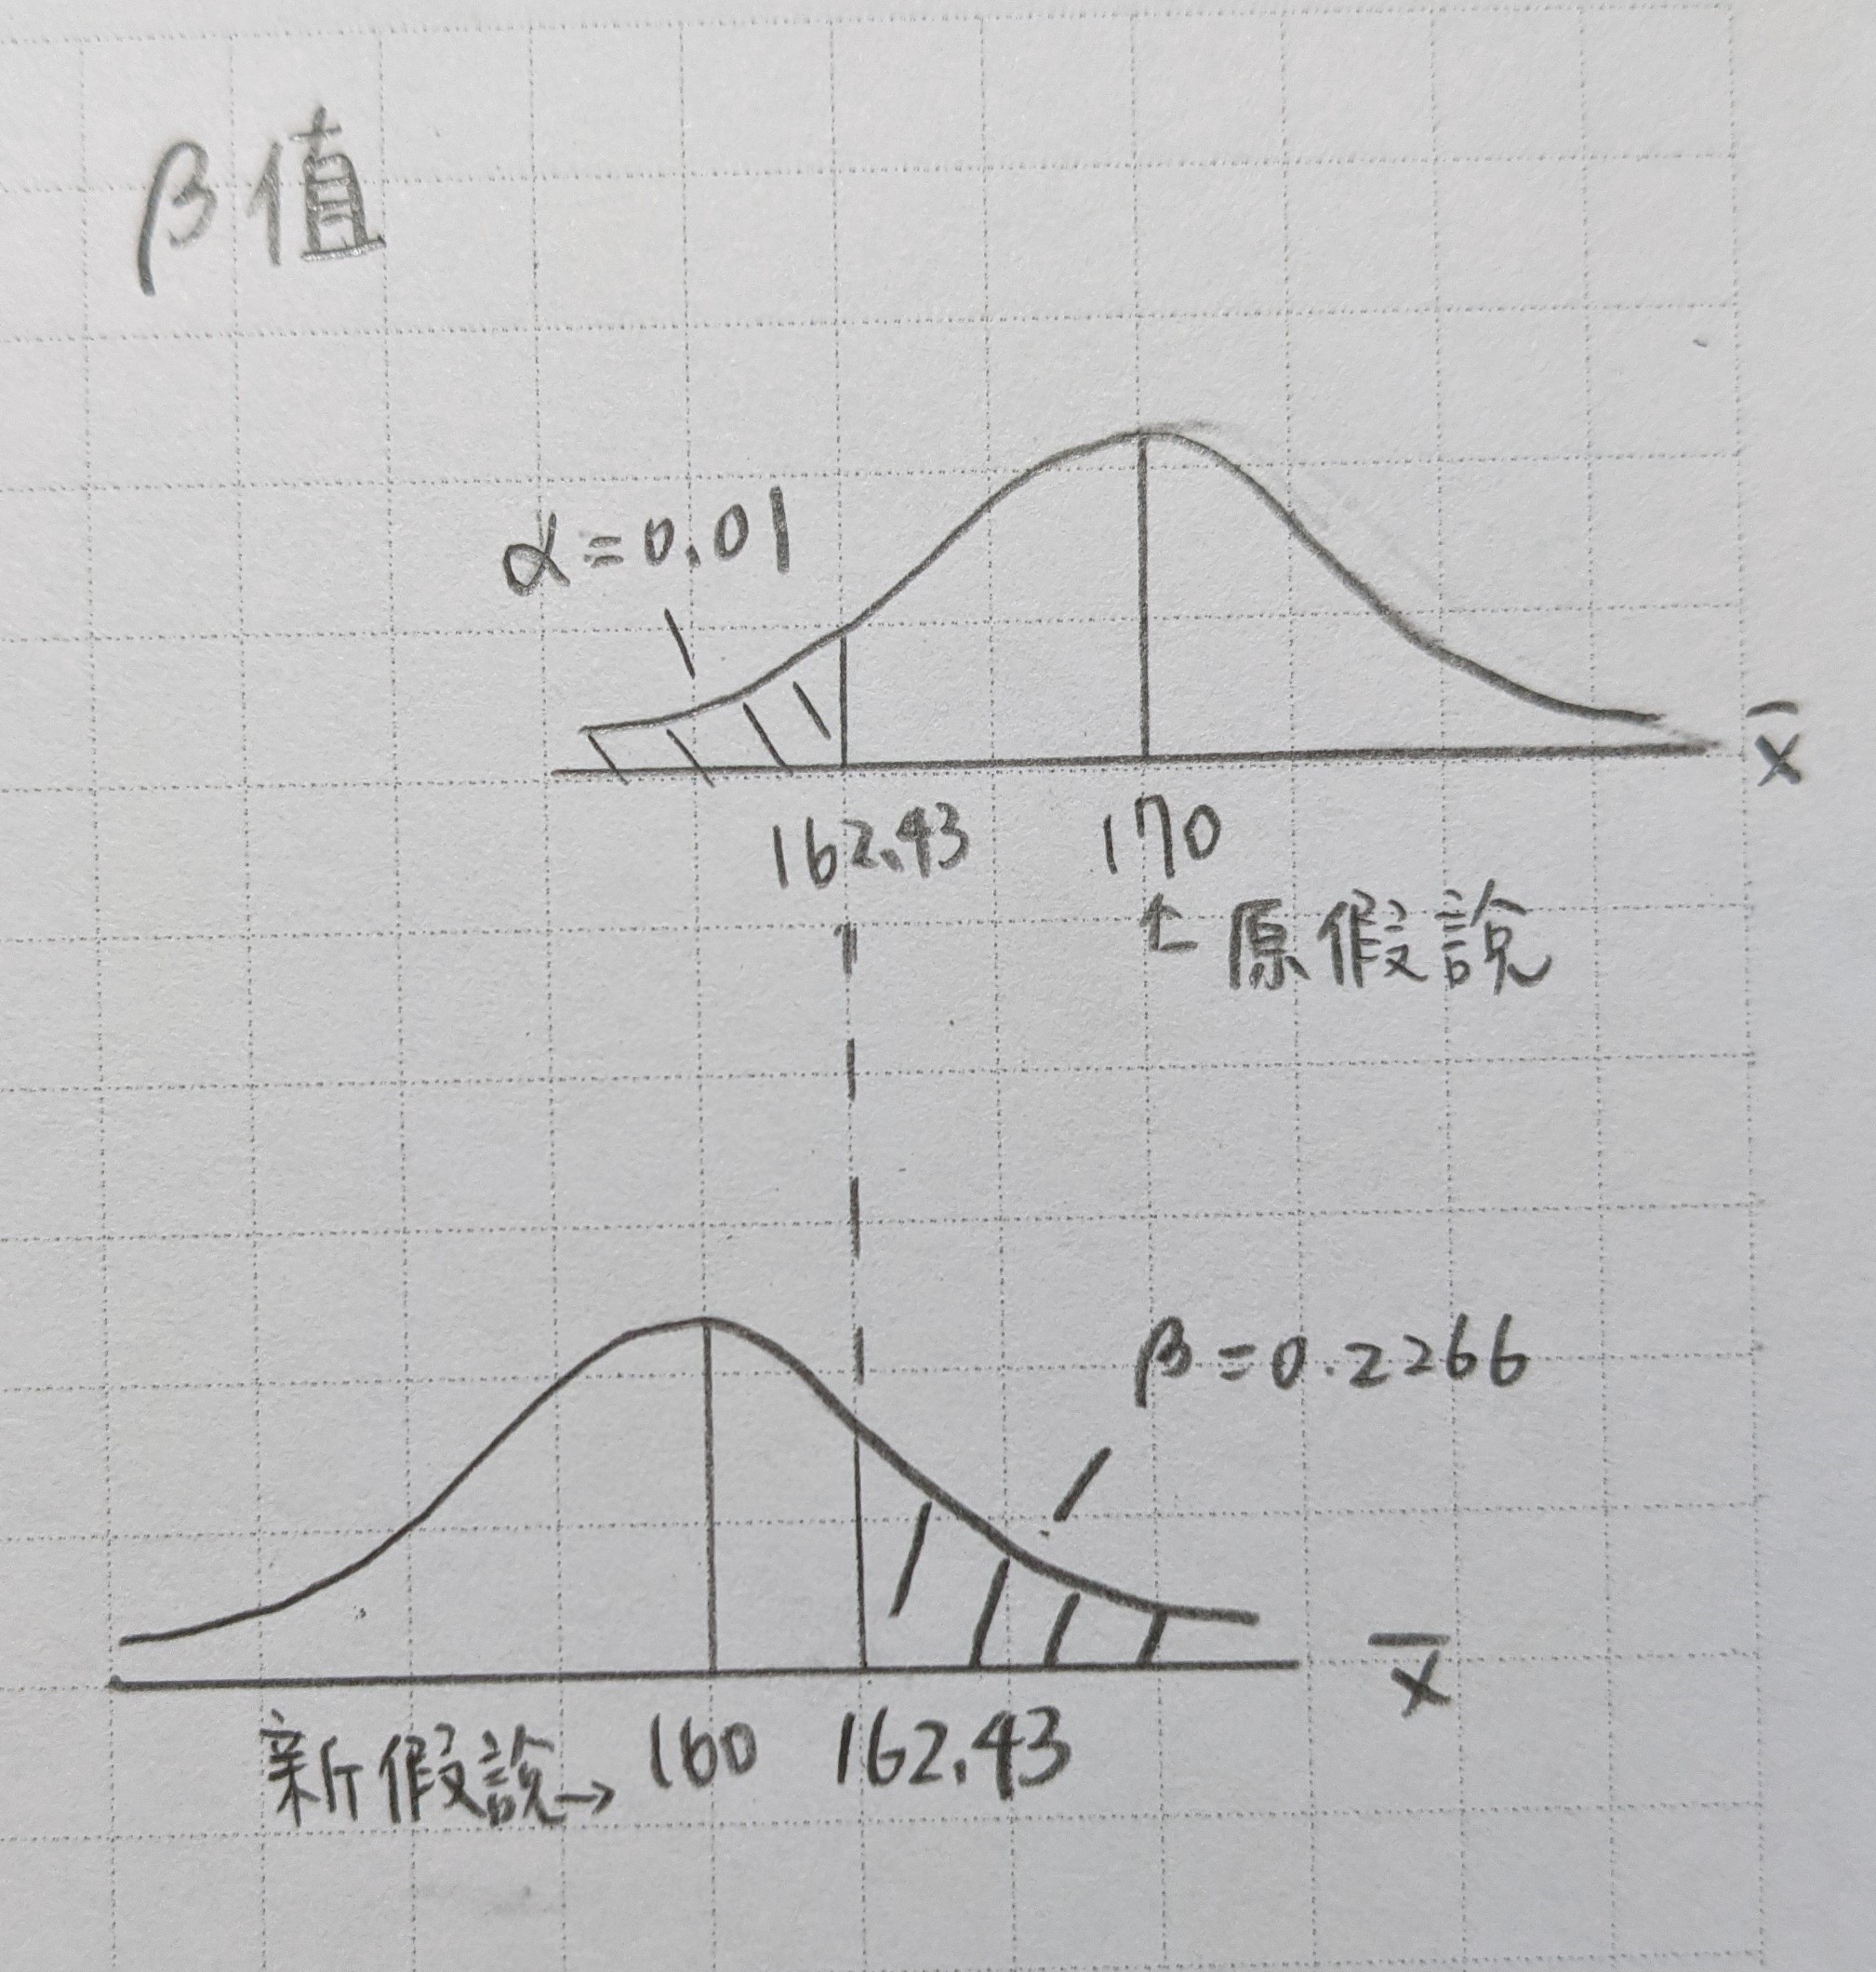 β值
α=0.01
x̄
162.43 170
↑原假說
β=0.2266
x̄
新假說→ 160 162.43